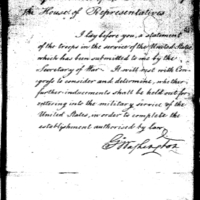 the House of Representatives
I lay before you, a statement
of the troops in the service of the United States
which has been submitted to me by the
Secretary of War. It will rest with Con-
gress to consider and determine, whether
further inducements shall be held out for
entering into the military service of the
United States, in order to complete the
establishment authorised by law.
G:Washington